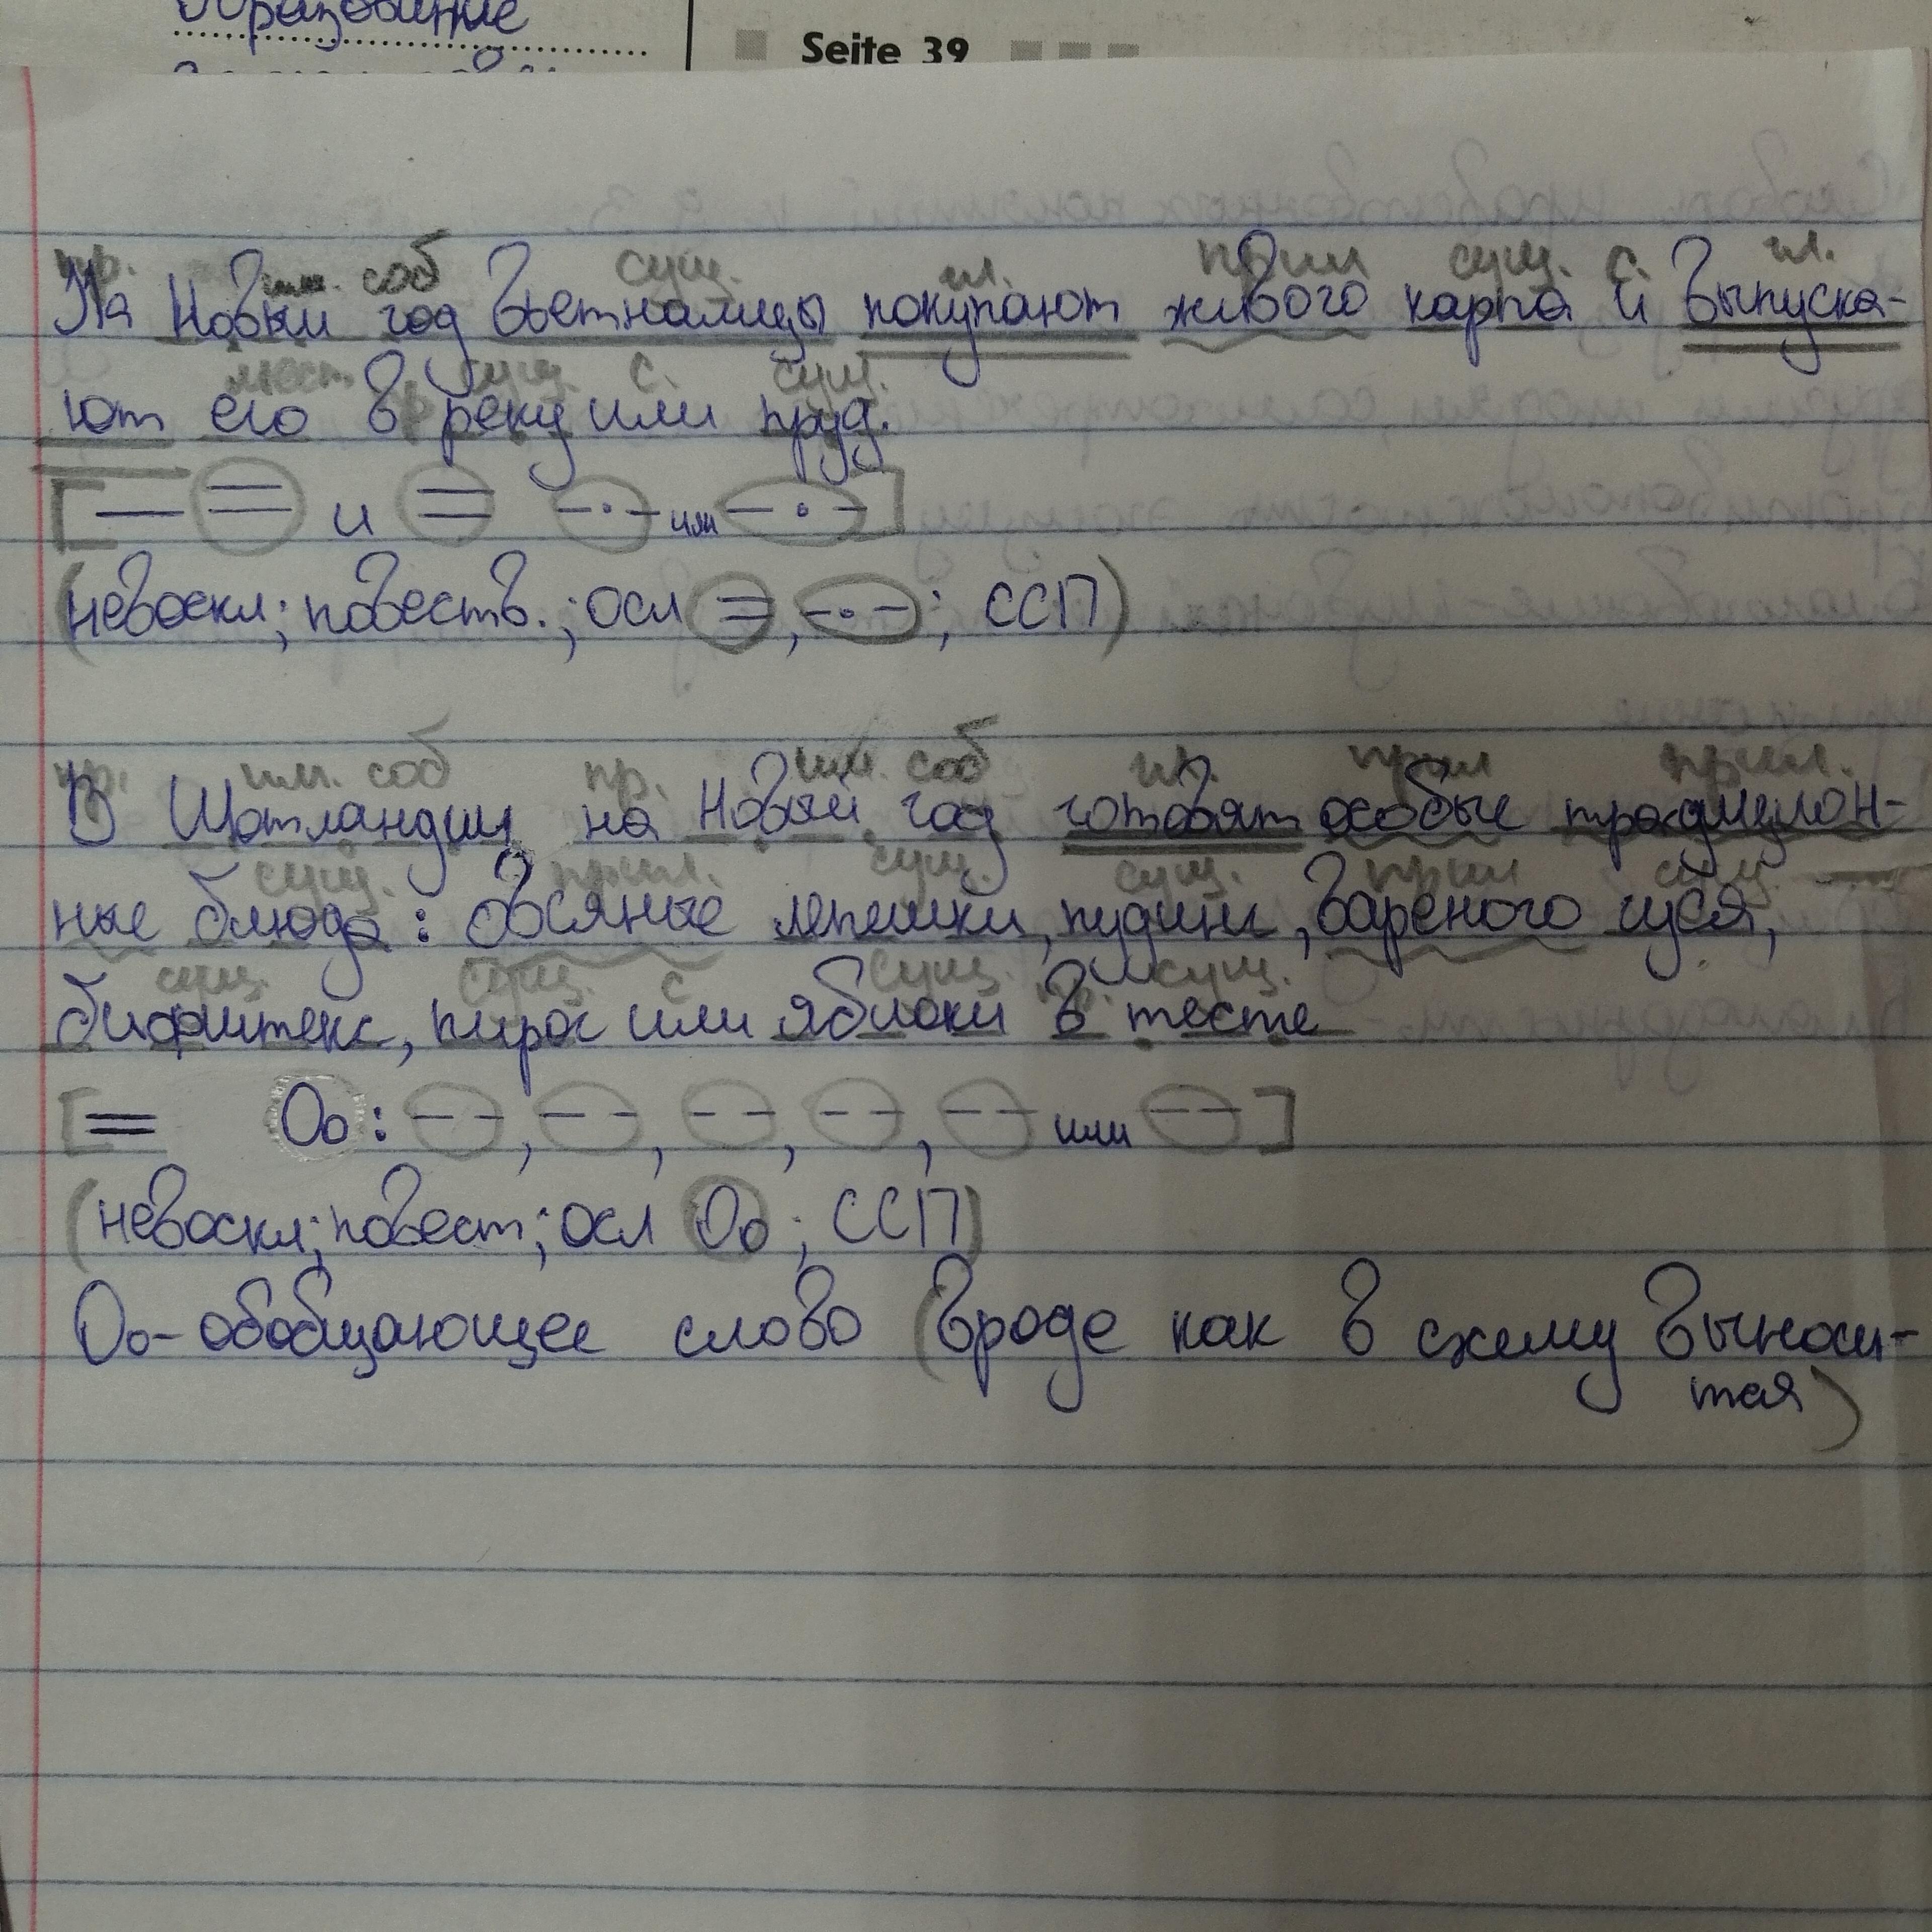 Образование
Seite 39
пр. им. соб сущ. гл. прил сущ. с. гл.
На Новый год вьетнамцы покупают живого карпа и выпуска-
мест. пр сущ. с. сущ.
ют его в реку или пруд.
[— = и = -·- или -·-]
(невоскл; повеств.; осл =, -·-; ССП)
пр. им. соб пр. им. соб гл. прил прил.
В Шотландии на Новый год готовят особые традицион-
сущ. прил. сущ. сущ. прил сущ.
ные блюда: овсяные лепешки, пудинг, вареного гуся,
сущ. сущ. с сущ. пр. сущ.
бифштекс, пирог или яблоки в тесте
[= Оо: --, --, --, --, -- или --]
(невоскл; повест; осл Оо; ССП)
Оо- обобщающее слово (вроде как в схему выноси-
тся)